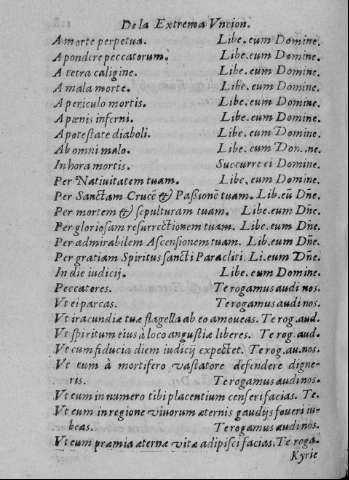 De la Extrema Vncion.
A morte perpetua. Libe. eum Domine.
A pondere peccatorum. Libe. eum Domine.
A tetra caligine. Libe. eum Domine.
A mala morte. Libe. eum Domine.
A periculo mortis. Libe. eum Domine.
A pœnis inferni. Libe. eum Domine.
A potestate diaboli. Libe. eum Domine.
Ab omni malo. Libe. eum Domine.
In hora mortis. Succurre ei Domine.
Per Natiuitatem tuam. Libe. eum Domine.
Per Sanctam Crucē & Passionē tuam. Lib. eū Dñe.
Per mortem & sepulturam tuam. Libe. eum Dñe.
Per gloriosam resurrectionem tuam. Libe. eum Dñe.
Per admirabilem Ascensionem tuam. Lib. eum Dñe.
Per gratiam Spiritus sancti Paracliti. Li. eum Dñe.
In die iudicij. Libe. eum Domine.
Peccatores. Te rogamus audi nos.
Vt ei parcas. Te rogamus audi nos.
Vt iracundiæ tuæ flagella ab eo amoueas. Te rog. aud.
Vt spiritum eius à loco angustiæ liberes. Te rog. aud.
Vt cum fiducia diem iudicij expectet. Te rog. au. nos.
Vt eum à mortifero vastatore defendere digne-
ris. Te rogamus audi nos.
Vt eum in numero tibi placentium censeri facias. Te.
Vt eum in regione viuorum æternis gaudijs foueri iu-
beas. Te rogamus audi nos.
Vt eum præmia æternæ vitæ adipisci facias. Te roga.
Kyrie